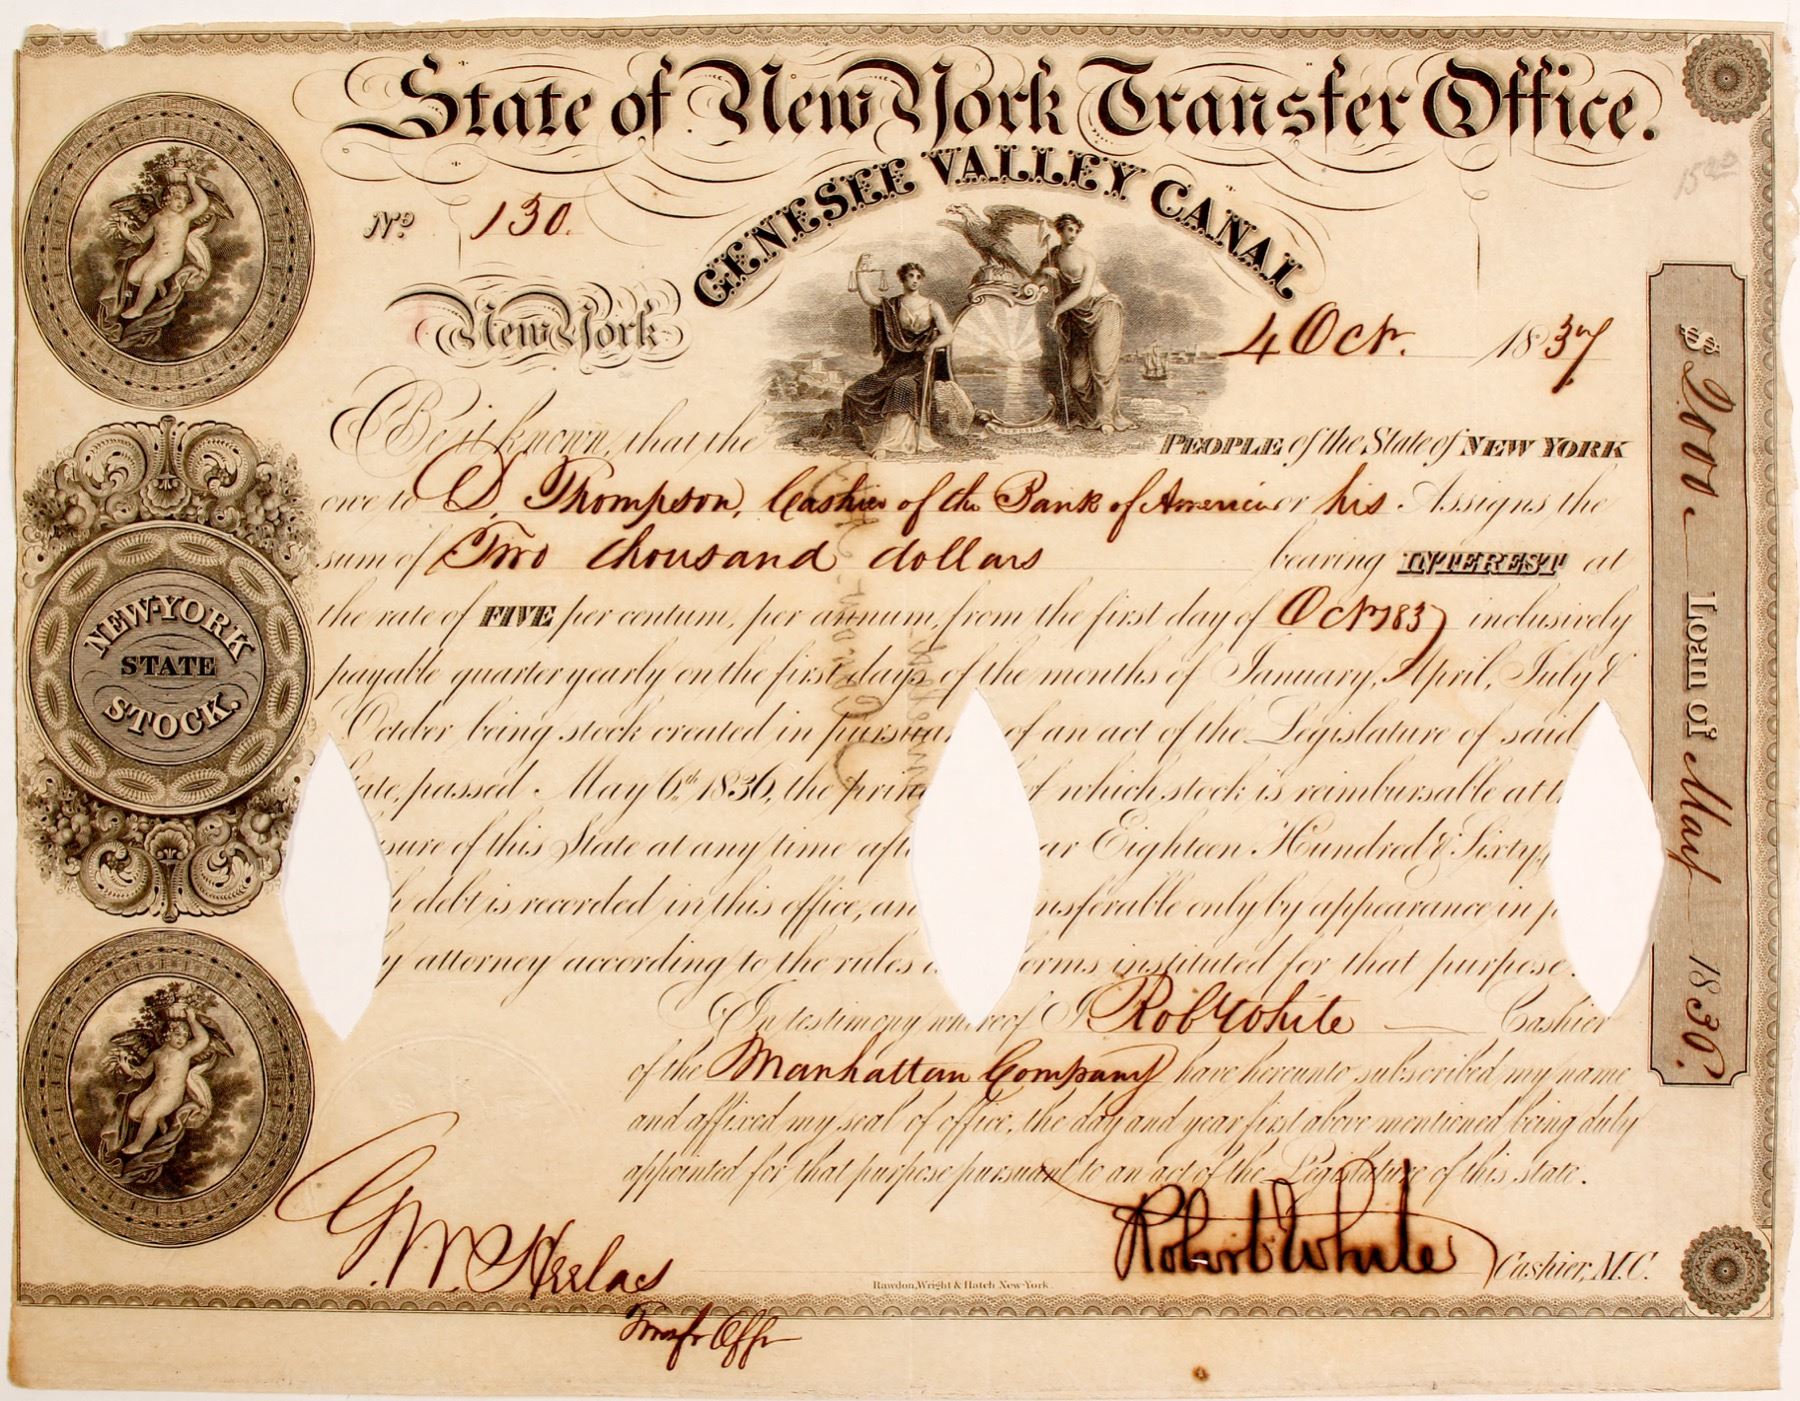 State of New York Transfer Office.
GENESEE VALLEY CANAL
1520
No 130.
New York
4 Oct. 1837
Be it known, that the PEOPLE of the State of NEW YORK
owe to D. Thompson, Cashier of the Bank of America or his Assigns the
sum of Two thousand dollars bearing INTEREST at
the rate of FIVE per centum, per annum, from the first day of Oct 1837 inclusively
payable quarter yearly on the first days of the months of January, April, July &
October being stock created in of an act of the Legislature of said
passed May 6th 1836, the of which stock is reimbursable at
of this State at any time Eighteen Hundred & Sixty
debt is recorded in this office, only by appearance in
attorney according to the rules instituted for that purpose.
In testimony whereof I Robt White Cashier
of the Manhattan Company have hereunto subscribed my name
and affixed my seal of office, the day and year first above mentioned being duly
appointed for that purpose pursuant to an act of the Legislature of this state.
Robert White Cashier, M.C.
Rawdon, Wright & Hatch New-York.
Transfr Offr
NEW-YORK
STATE
STOCK.
$ 2000. Loan of May 1836.